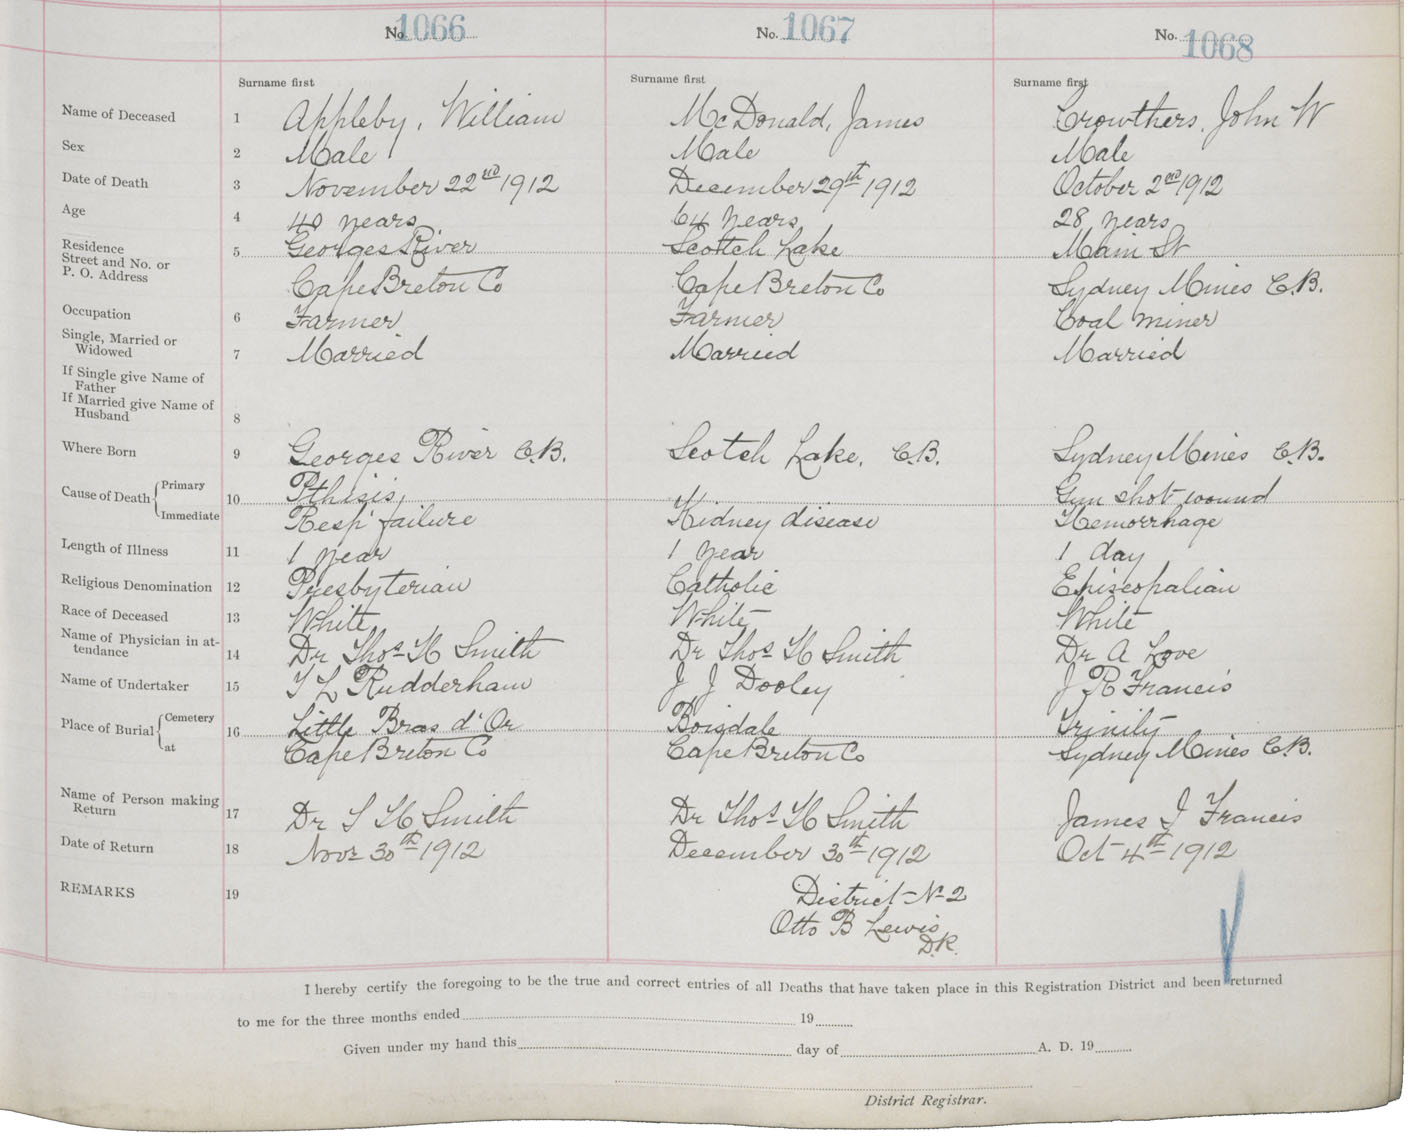 No. 1066 No. 1067 No. 1068
Surname first Surname first Surname first
Name of Deceased 1 Appleby, William McDonald, James Crowthers, John W
Sex 2 Male Male Male
Date of Death 3 November 22nd 1912 December 29th 1912 October 2nd 1912
Age 4 40 years 64 years 28 years
Residence 5 Georges River Scotch Lake Main St
Street and No. or
P. O. Address Cape Breton Co Cape Breton Co Sydney Mines C.B.
Occupation 6 Farmer Farmer Coal miner
Single, Married or
Widowed 7 Married Married Married
If Single give Name of
Father
If Married give Name of
Husband 8
Where Born 9 Georges River C.B. Scotch Lake, C.B. Sydney Mines C.B.
Cause of Death Primary 10 Pthisis, Gun shot wound
Immediate Resp' failure Kidney disease Hemorrhage
Length of Illness 11 1 year 1 year 1 day
Religious Denomination 12 Presbyterian Catholic Episcopalian
Race of Deceased 13 White White White
Name of Physician in at-
tendance 14 Dr Thos H Smith Dr Thos H Smith Dr A Love
Name of Undertaker 15 T L Rudderham J J Dooley J R Francis
Place of Burial Cemetery 16 Little Bras d'Or Boisdale Trinity
at Cape Breton Co Cape Breton Co Sydney Mines C.B.
Name of Person making
Return 17 Dr T H Smith Dr Thos H Smith James J Francis
Date of Return 18 Novr 30th 1912 December 30th 1912 Oct 4th 1912
REMARKS 19 District N- 2
Otto B Lewis
D.R.
I hereby certify the foregoing to be the true and correct entries of all Deaths that have taken place in this Registration District and been returned
to me for the three months ended 19
Given under my hand this day of A. D. 19
District Registrar.